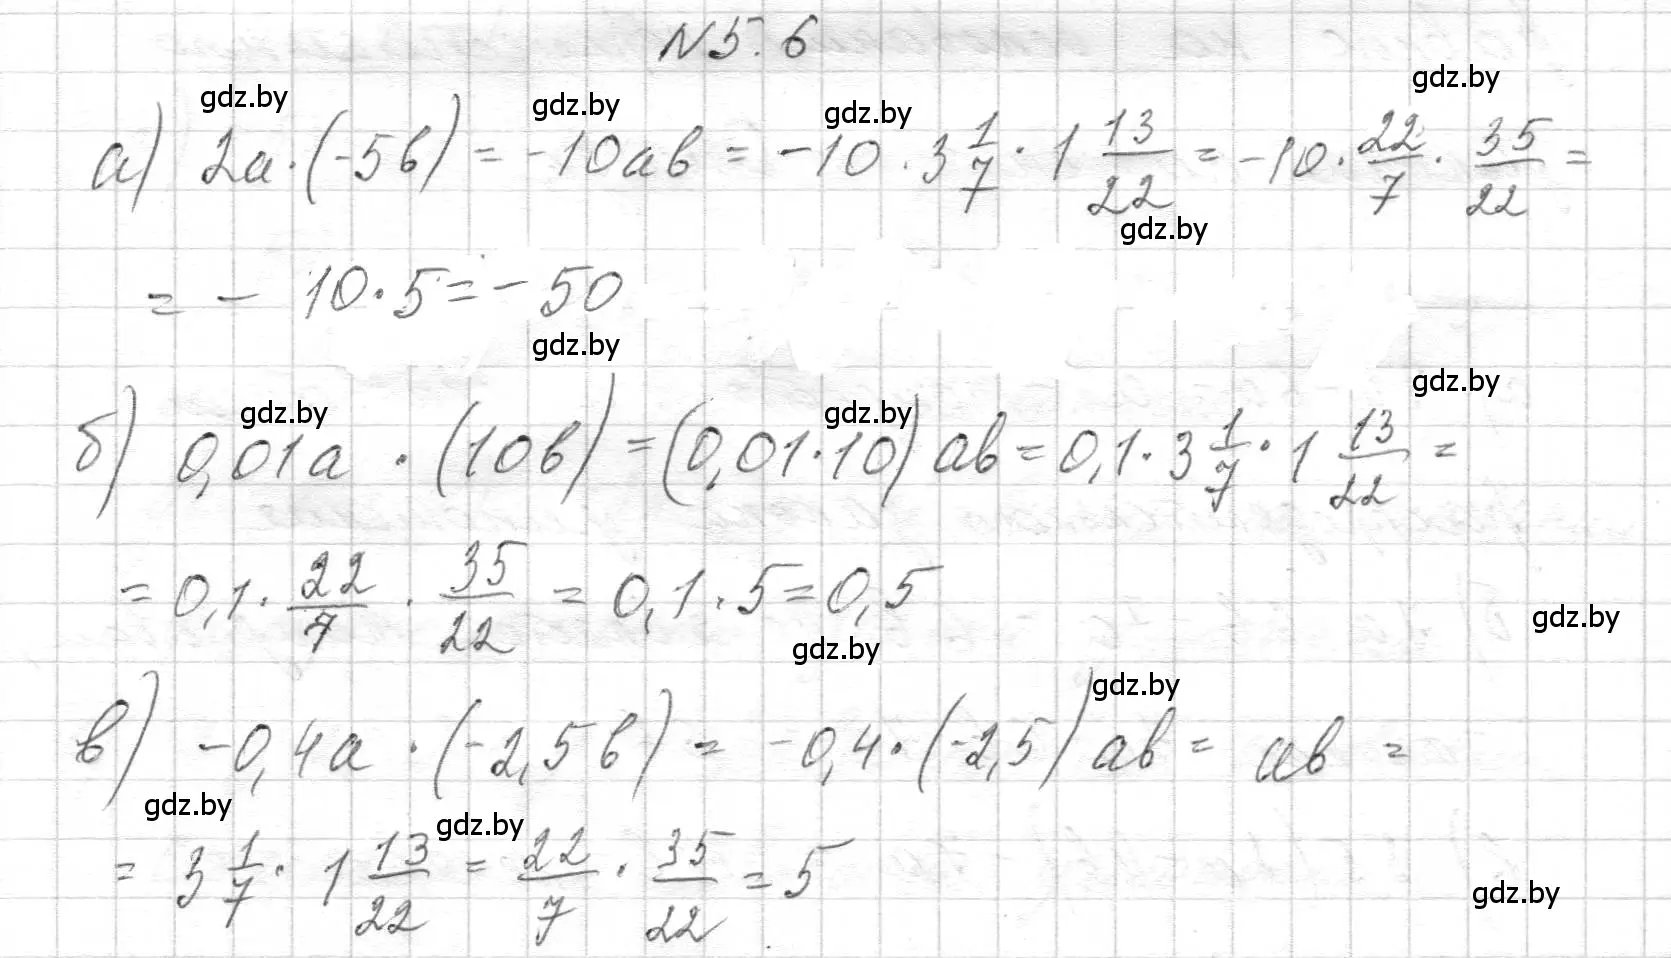 N5.6
gdz.by gdz.by gdz.by gdz.by
а) 2a·(-5b) = -10ab = -10·3 1/7·1 13/22 = -10·22/7·35/22 =
gdz.by
= - 10·5=-50
gdz.by
gdz.by gdz.by gdz.by
б) 0,01a·(10b)=(0,01·10)ab=0,1·3 1/7·1 13/22=
= 0,1·22/7·35/22 = 0,1·5=0,5
gdz.by
gdz.by
gdz.by
в) -0,4a·(-2,5b) = -0,4·(-2,5)ab = ab =
gdz.by gdz.by
= 3 1/7·1 13/22 = 22/7·35/22 = 5
gdz.by